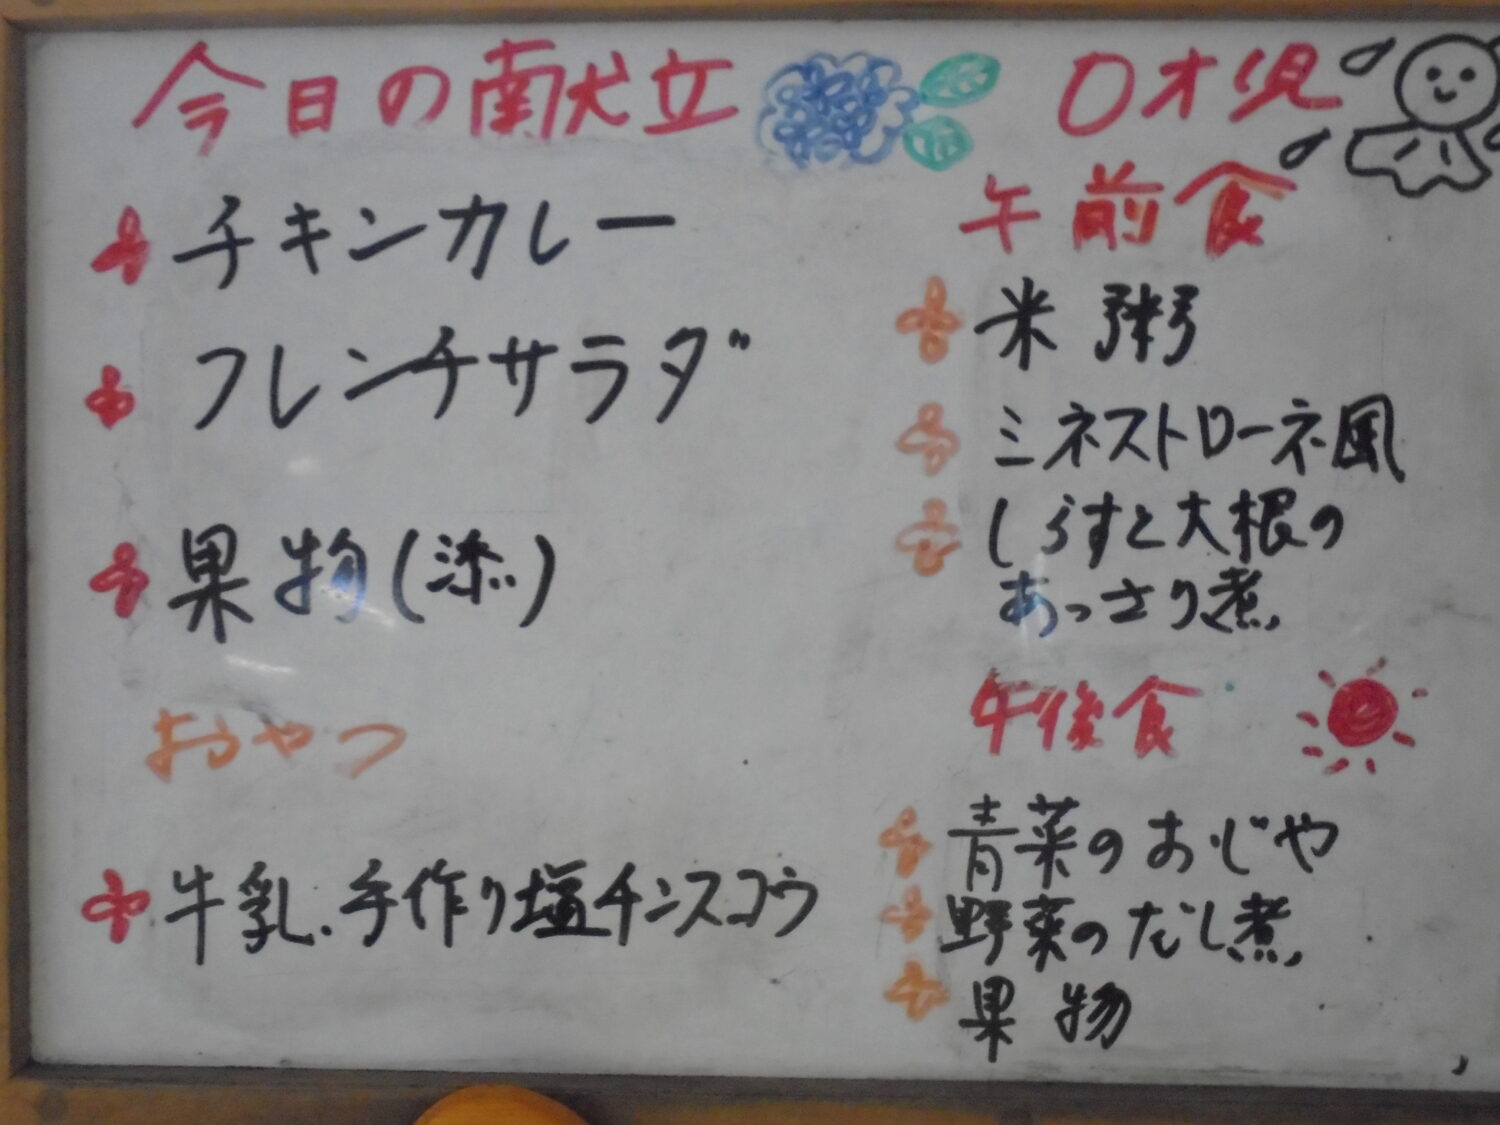 今日の献立
チキンカレー
フレンチサラダ
果物(添)
おやつ
牛乳.手作り塩チンスコウ
0才児
午前食
米粥
ミネストローネ風
しらすと大根の
あっさり煮
午後食
青菜のおじや
野菜のだし煮
果物